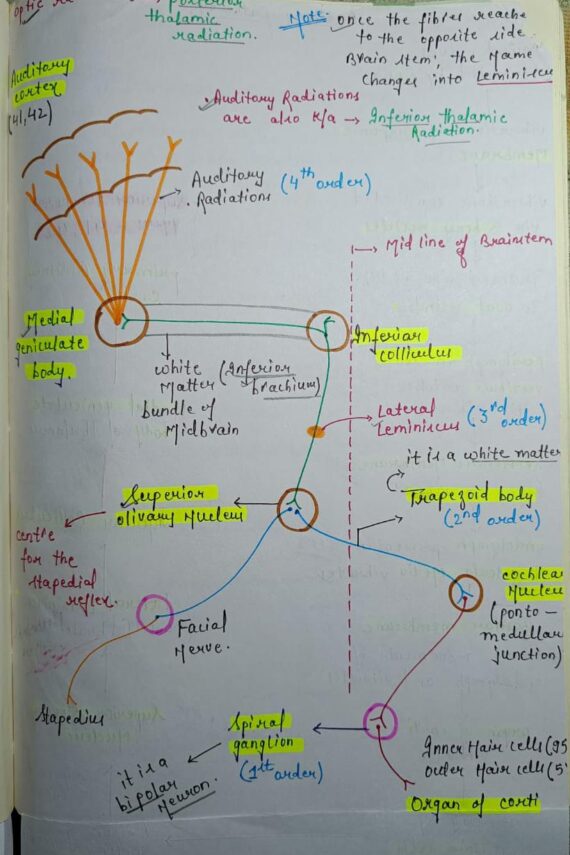 optic
posterior
thalamic
radiation.
Note: once the fibres reache
to the opposite side
Brain stem, the Name
changes into Leminiscu
Auditory
cortex
(41,42)
Auditory Radiations
are also k/a → Inferior thalamic
Radiation.
Auditory (4th order)
Radiations
Mid line of Brainstem
Medial
geniculate
body.
Inferior
colliculus
white (Inferior
Matter brachium)
bundle of
Midbrain
Lateral (3rd
Leminiscus order)
it is a white matter
Trapezoid body
(2nd order)
Superior
olivary Nucleus
centre
for the
stapedial
reflex.
cochlear
Nuclei
(ponto-
medullar
junction)
Facial
Nerve.
Stapedius
Spiral
ganglion
(1st order)
it is a
bipolar
Neuron.
Inner Hair cells (95
outer Hair cells (5
Organ of corti